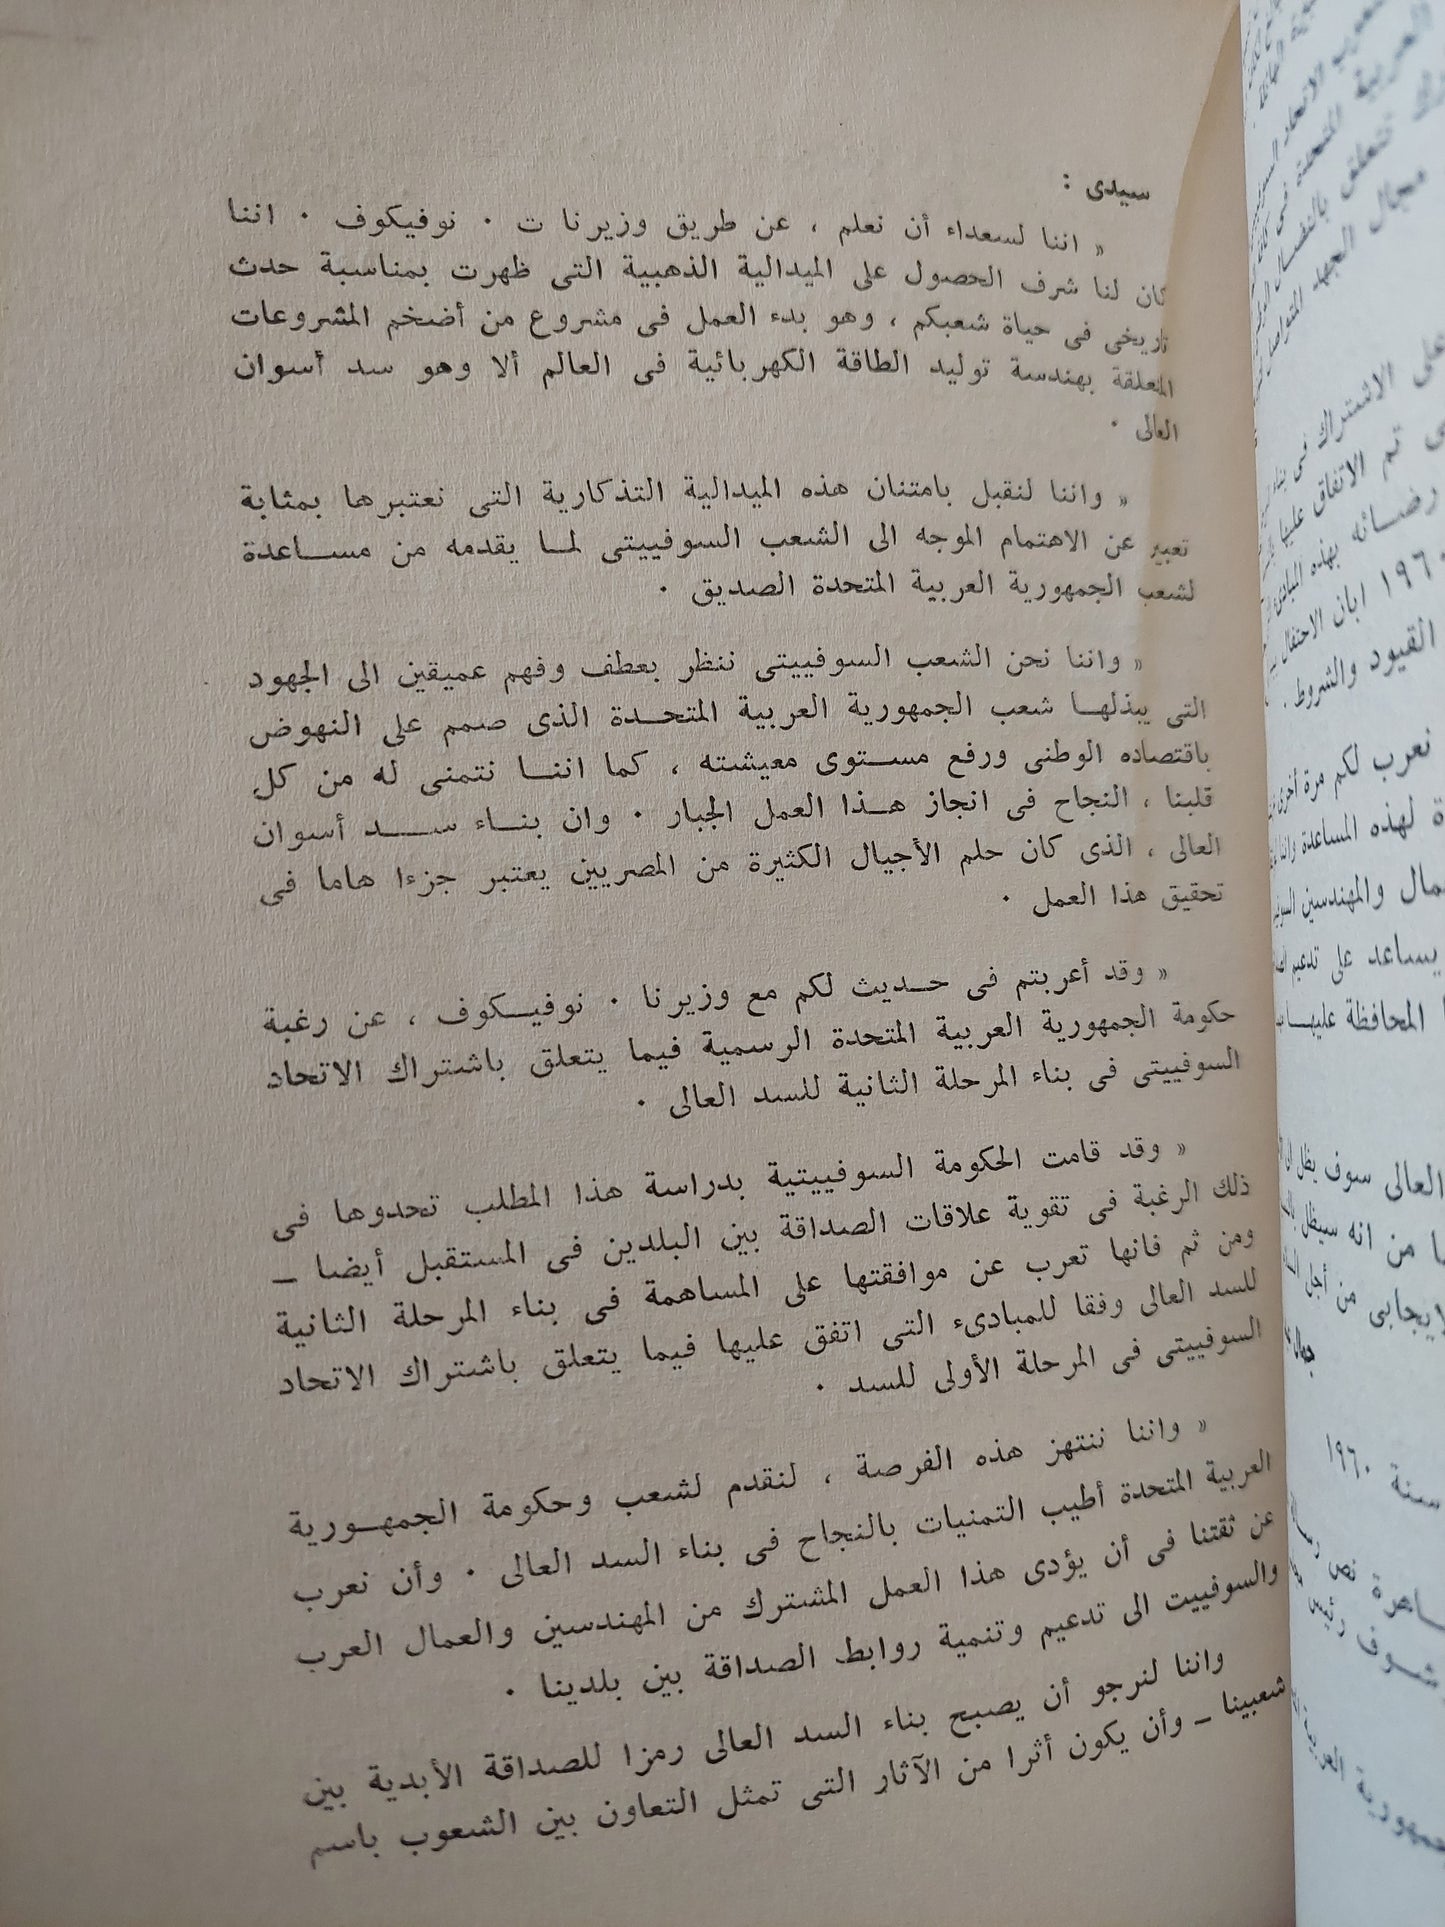 سيدى :
« اننا لسعداء أن نعلم ، عن طريق وزيرنا ت . نوفيكوف . اننا
كان لنا شرف الحصول على الميدالية الذهبية التى ظهرت بمناسبة حدث
تاريخى فى حياة شعبكم ، وهو بدء العمل فى مشروع من أضخم المشروعات
المتعلقة بهندسة توليد الطاقة الكهربائية فى العالم ألا وهو سد أسوان
العالى .
« واننا لنقبل بامتنان هذه الميدالية التذكارية التى نعتبرها بمثابة
تعبير عن الاهتمام الموجه الى الشعب السوفييتى لما يقدمه من مساعدة
لشعب الجمهورية العربية المتحدة الصديق .
« واننا نحن الشعب السوفييتى ننظر بعطف وفهم عميقين الى الجهود
التى يبذلها شعب الجمهورية العربية المتحدة الذى صمم على النهوض
باقتصاده الوطنى ورفع مستوى معيشته ، كما اننا نتمنى له من كل
قلبنا ، النجاح فى انجاز هذا العمل الجبار . وان بناء سد أسوان
العالى ، الذى كان حلم الأجيال الكثيرة من المصريين يعتبر جزءا هاما فى
تحقيق هذا العمل .
« وقد أعربتم فى حديث لكم مع وزيرنا . نوفيكوف ، عن رغبة
حكومة الجمهورية العربية المتحدة الرسمية فيما يتعلق باشتراك الاتحاد
السوفييتى فى بناء المرحلة الثانية للسد العالى .
« وقد قامت الحكومة السوفييتية بدراسة هذا المطلب تحدوها فى
ذلك الرغبة فى تقوية علاقات الصداقة بين البلدين فى المستقبل أيضا –
ومن ثم فانها تعرب عن موافقتها على المساهمة فى بناء المرحلة الثانية
للسد العالى وفقا للمبادىء التى اتفق عليها فيما يتعلق باشتراك الاتحاد
السوفييتى فى المرحلة الأولى للسد .
« واننا ننتهز هذه الفرصة ، لنقدم لشعب وحكومة الجمهورية
العربية المتحدة أطيب التمنيات بالنجاح فى بناء السد العالى . وأن نعرب
عن ثقتنا فى أن يؤدى هذا العمل المشترك من المهندسين والعمال العرب
والسوفييت الى تدعيم وتنمية روابط الصداقة بين بلدينا .
واننا لنرجو أن يصبح بناء السد العالى رمزا للصداقة الأبدية بين
شعبينا – وأن يكون أثرا من الآثار التى تمثل التعاون بين الشعوب باسم
العربية المتحدة فى
تتعلق بالنفسال
مجال الجهد المتواصل
على الاشتراك فى بناء
تم الاتفاق عليها
رضائه بهذه المبادئ
١٩٦٠ ابان الاحتفال
القيود والشروط .
نعرب لكم مرة أخرى
لهذه المساعدة واننا
والمهندسين
يساعد على تدعيم
المحافظة عليها
العالى سوف يظل
من انه سيظل
من أجل
سنة ١٩٦٠